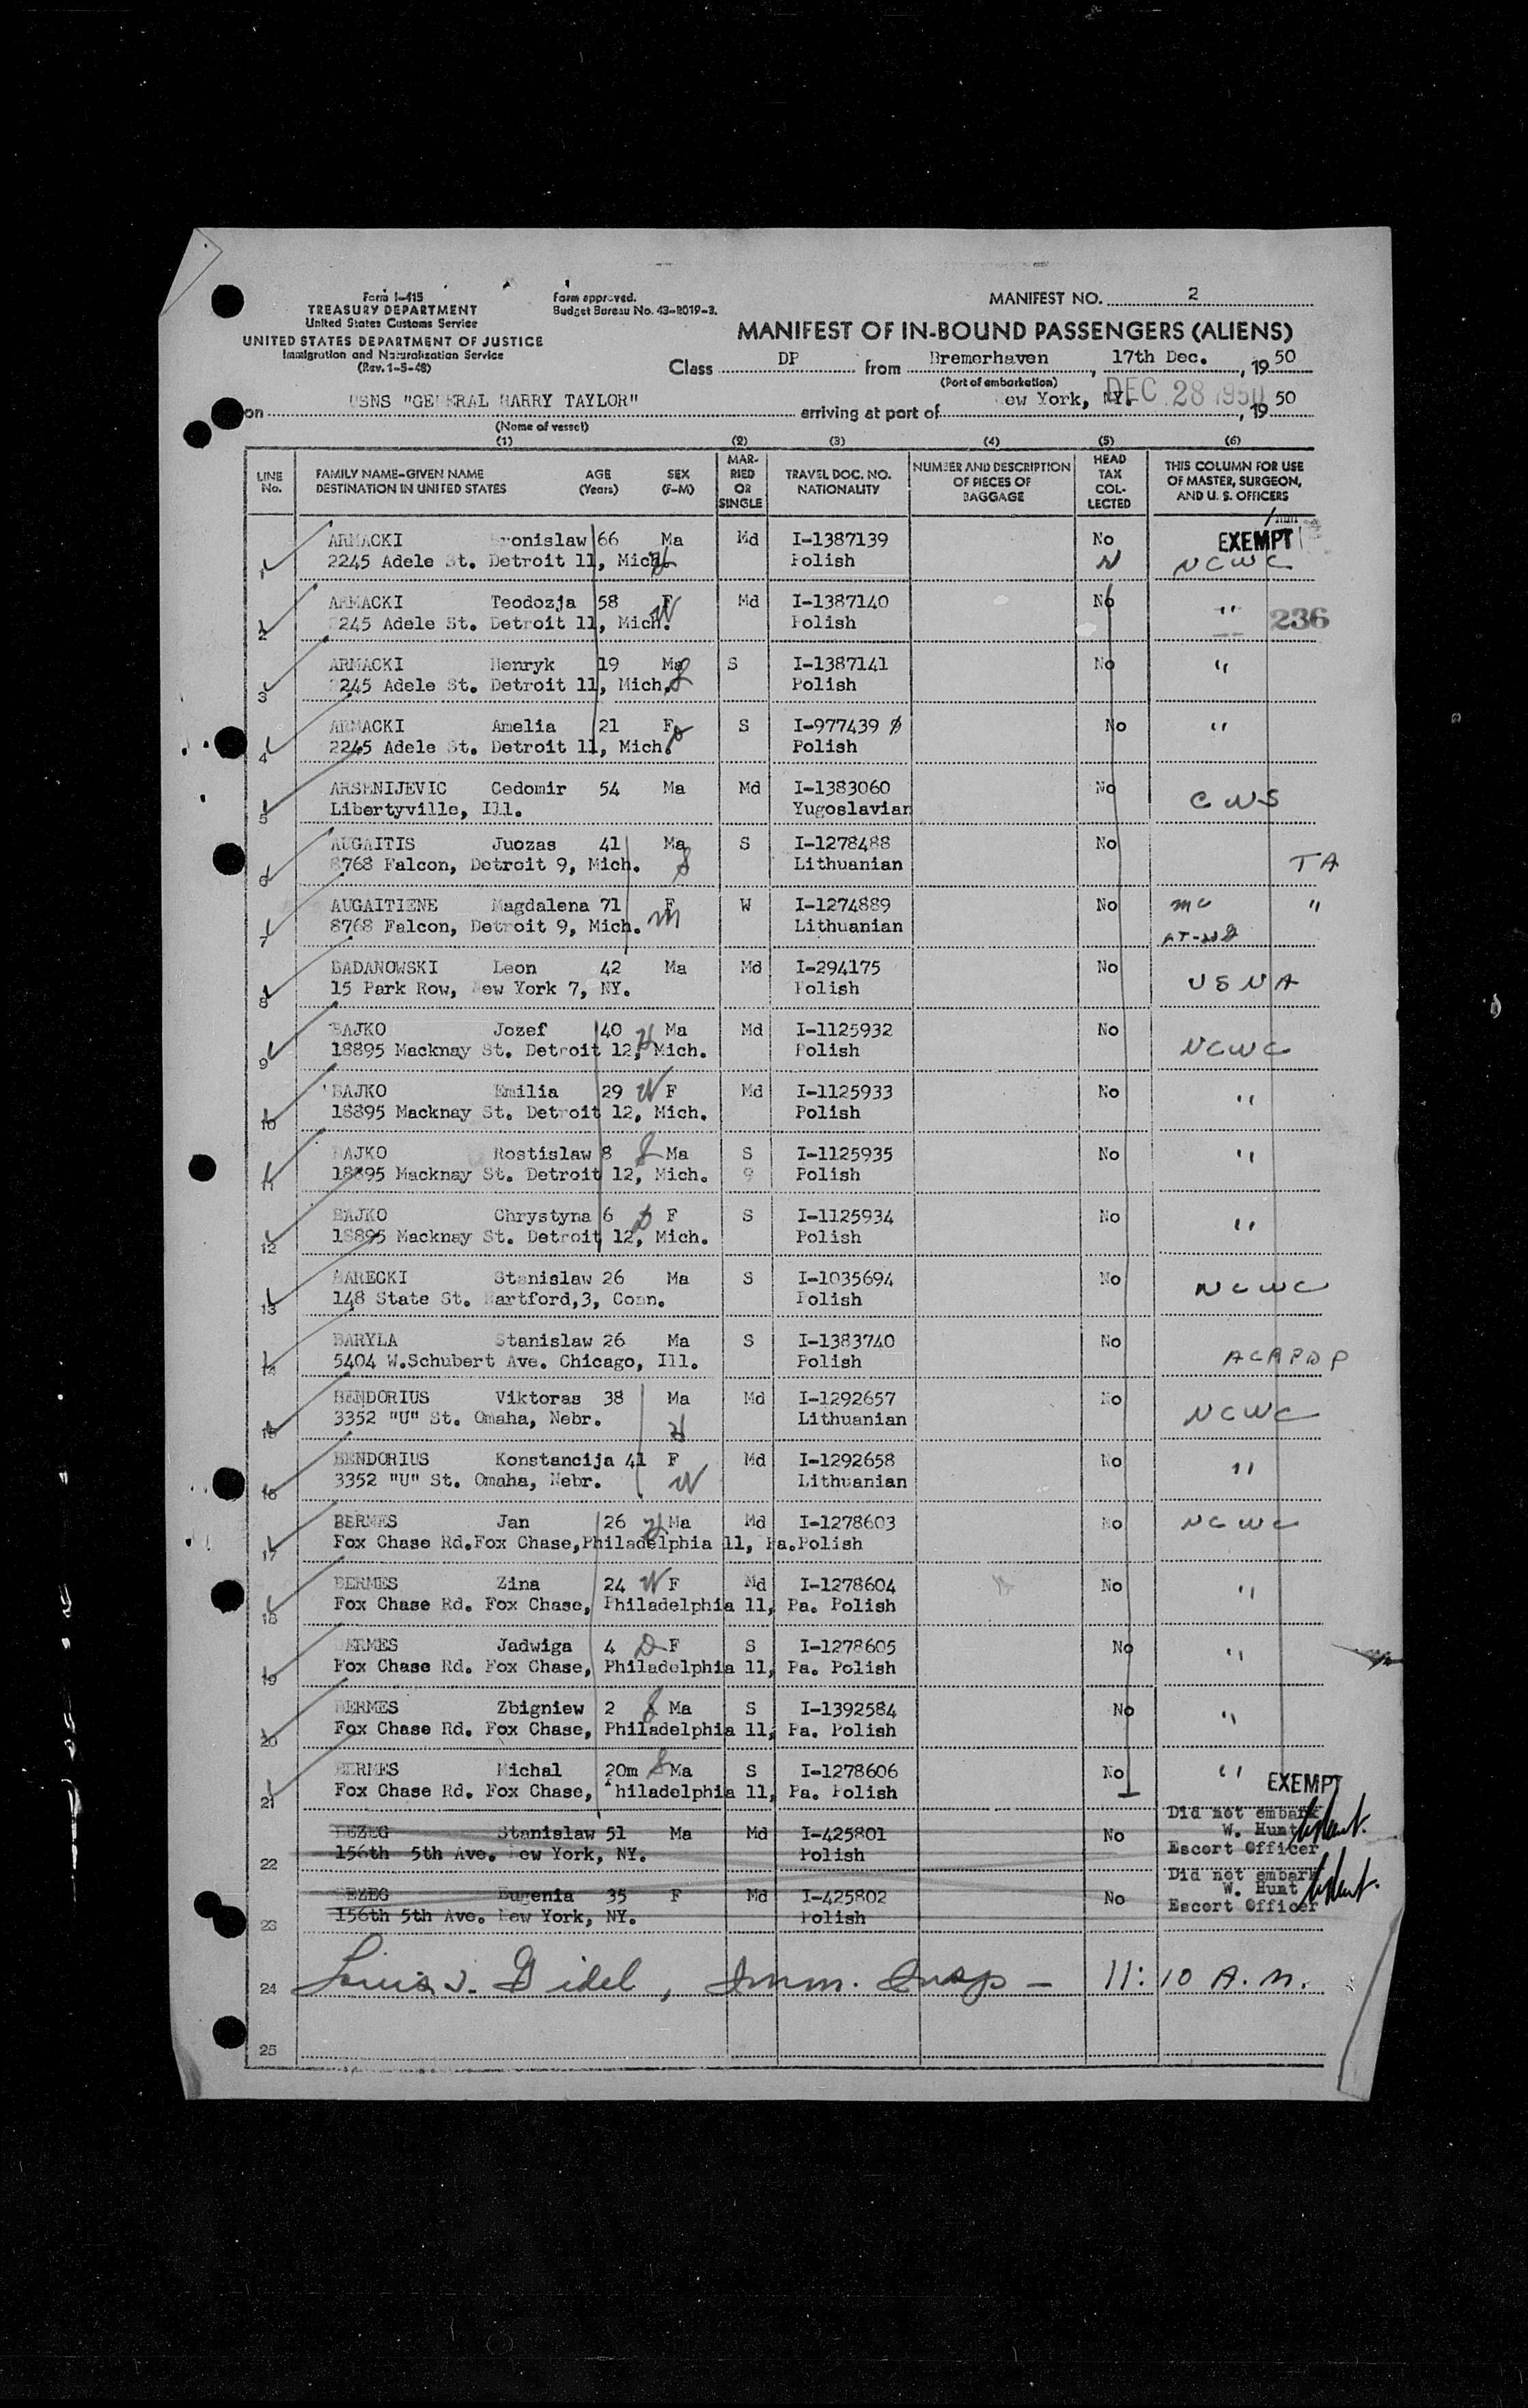 Form I-415
TREASURY DEPARTMENT
United States Customs Service
UNITED STATES DEPARTMENT OF JUSTICE
Immigration and Naturalization Service
(Rev. 1-5-48)
Form approved.
Budget Bureau No. 43-R019-3.
MANIFEST NO. 2
MANIFEST OF IN-BOUND PASSENGERS (ALIENS)
Class DP from Bremerhaven, 17th Dec., 1950
(Port of embarkation)
on USNS "GENERAL HARRY TAYLOR" arriving at port of New York, NY. DEC 28 1950, 1950
(Name of vessel)
(1) (2) (3) (4) (5) (6)
LINE No.
FAMILY NAME-GIVEN NAME AGE SEX
DESTINATION IN UNITED STATES (Years) (F-M)
MARRIED OR SINGLE
TRAVEL DOC. NO. NATIONALITY
NUMBER AND DESCRIPTION OF PIECES OF BAGGAGE
HEAD TAX COLLECTED
THIS COLUMN FOR USE OF MASTER, SURGEON, AND U. S. OFFICERS
1 ARMACKI Bronislaw 66 Ma Md I-1387139 No EXEMPT
2245 Adele St. Detroit 11, Mich. H Polish N NCWC
2 ARMACKI Teodozja 58 F Md I-1387140 No " 236
2245 Adele St. Detroit 11, Mich. W Polish
3 ARMACKI Henryk 19 Ma S I-1387141 No "
2245 Adele St. Detroit 11, Mich. S Polish
4 ARMACKI Amelia 21 F S I-977439 No "
2245 Adele St. Detroit 11, Mich. D Polish
5 ARSENIJEVIC Cedomir 54 Ma Md I-1383060 No CWS
Libertyville, Ill. Yugoslavian
6 AUGAITIS Juozas 41 Ma S I-1278488 No
8768 Falcon, Detroit 9, Mich. S Lithuanian TA
7 AUGAITIENE Magdalena 71 F W I-1274889 No "
8768 Falcon, Detroit 9, Mich. M Lithuanian
8 BADANOWSKI Leon 42 Ma Md I-294175 No USNA
15 Park Row, New York 7, NY. Polish
9 BAJKO Jozef 40 H Ma Md I-1125932 No NCWC
18895 Macknay St. Detroit 12, Mich. Polish
10 BAJKO Emilia 29 W F Md I-1125933 No "
18895 Macknay St. Detroit 12, Mich. Polish
11 BAJKO Rostislaw 8 S Ma S I-1125935 No "
18895 Macknay St. Detroit 12, Mich. 9 Polish
12 BAJKO Chrystyna 6 D F S I-1125934 No "
18895 Macknay St. Detroit 12, Mich. Polish
13 BARECKI Stanislaw 26 Ma S I-1035694 No NCWC
148 State St. Hartford,3, Conn. Polish
14 BARYLA Stanislaw 26 Ma S I-1383740 No
5404 W.Schubert Ave. Chicago, Ill. Polish ACAPDP
15 BENDORIUS Viktoras 38 Ma Md I-1292657 No NCWC
3352 "U" St. Omaha, Nebr. H Lithuanian
16 BENDORIUS Konstancija 41 F Md I-1292658 No "
3352 "U" St. Omaha, Nebr. W Lithuanian
17 BERMES Jan 26 H Ma Md I-1278603 No NCWC
Fox Chase Rd.Fox Chase,Philadelphia 11, Pa.Polish
18 BERMES Zina 24 W F Md I-1278604 No "
Fox Chase Rd. Fox Chase, Philadelphia 11, Pa. Polish
19 BERMES Jadwiga 4 D F S I-1278605 No "
Fox Chase Rd. Fox Chase, Philadelphia 11, Pa. Polish
20 BERMES Zbigniew 2 S Ma S I-1392584 No "
Fox Chase Rd. Fox Chase, Philadelphia 11, Pa. Polish
21 BERMES Michal 20m S Ma S I-1278606 No " EXEMPT
Fox Chase Rd. Fox Chase, Philadelphia 11, Pa. Polish
22 BEZEG Stanislaw 51 Ma Md I-425801 No Did not embark
156th 5th Ave. New York, NY. Polish W. Hunt
Escort Officer
23 BEZEG Eugenia 35 F Md I-425802 No Did not embark
156th 5th Ave. New York, NY. Polish W. Hunt
Escort Officer
24 Louis J. Gidel, Imm. Insp - 11:10 A.M.
25